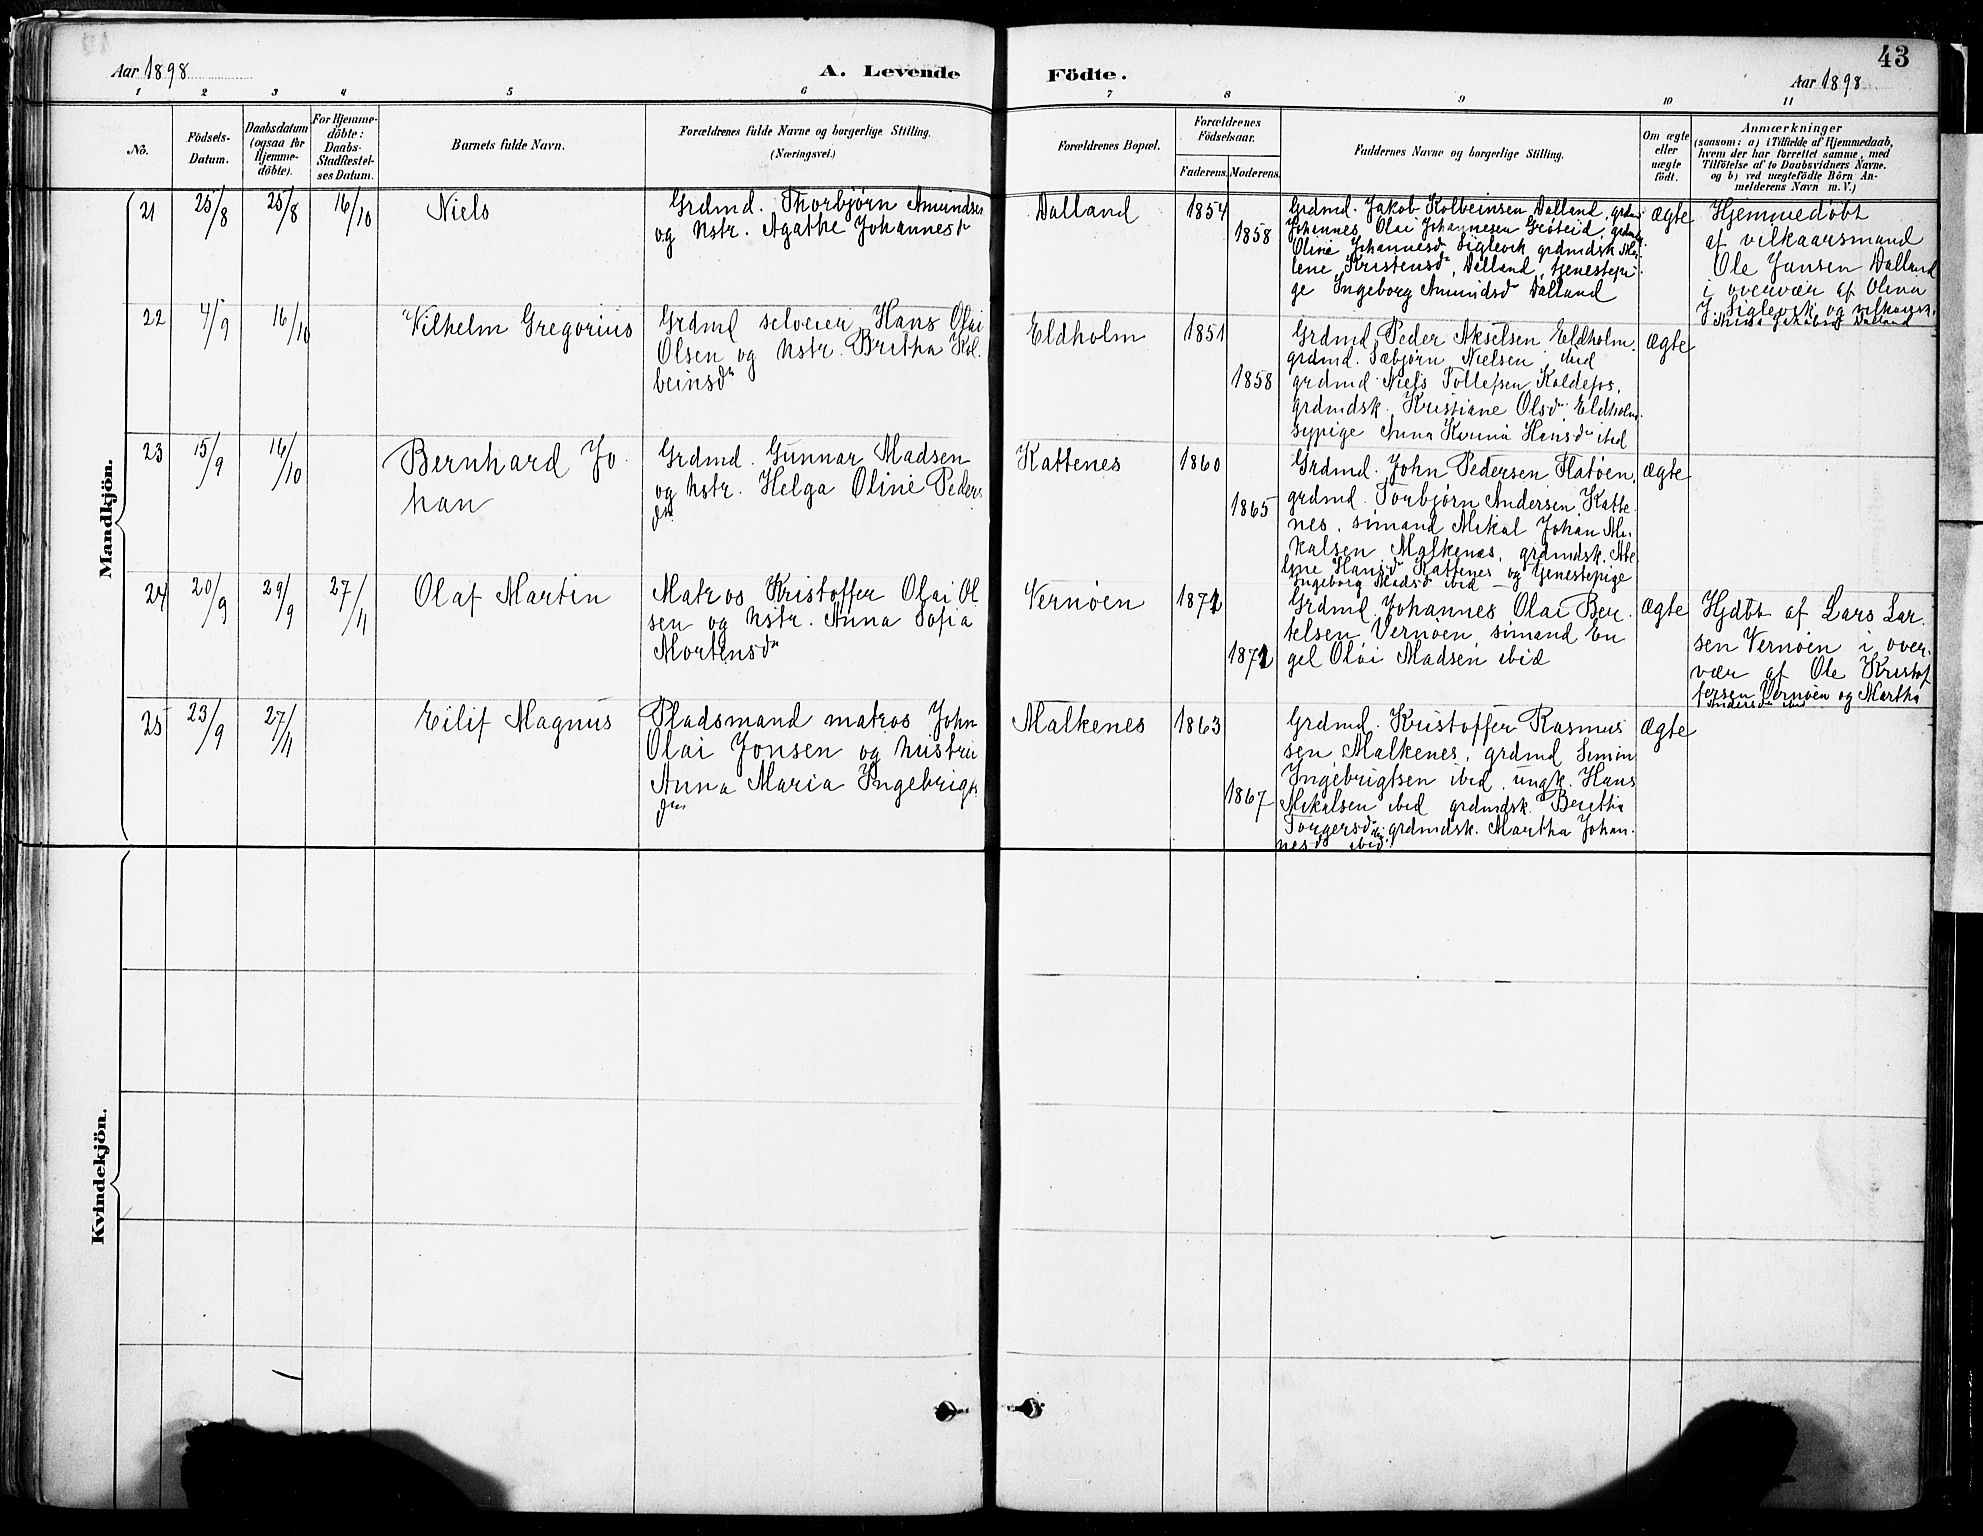 43
Aar 1898
A. Levende
Födte.
Aar 1898
1 2 3 4 5 6 7 8 9 10 11
No.
Födsels-
Datum.
Daabsdatum
(ogsaa for
Hjemme-
döbte).
For Hjemme-
döbte:
Daabs-
Stadfæstel-
ses Datum.
Barnets fulde Navn.
Forældrenes fulde Navne og borgerlige Stilling.
(Næringsvei.)
Forældrenes Bopæl.
Forældrenes
Födselsaar.
Faderens. Moderens.
Faddernes Navne og borgerlige Stilling.
Om ægte
eller
uægte
födt.
Anmærkninger
(saasom: a) i Tilfælde af Hjemmedaab,
hvem der har forrettet samme, med
Tilföielse af to Daabsvidners Navne.
og b) ved uægtefödte Börn An-
melderens Navn m.V.)
Mandkjön.
21
25/8
25/8
16/10
Niels
Grdmd. Thorbjørn Amundsen
og hstr. Agathe Johannesdr
Dalland
1854
1858
Grdmd. Jakob Kolbeinsen Dalland, grdmd
Johannes Olai Johannesen Grøteid, grdmds.
Oline Johannesdr Siglevik grdmdsk Ma-
lene Kristensdr, Dalland, tjenestepi-
ge Ingeborg Amundsdr Dalland
ægte
Hjemmedøbt
af vilkaarsmand
Ole Jansen Dalland
i overvær af Olina
J. Siglevik og vilkaarsk.
Anna Jakobsdr Dalland
22
4/9
16/10
Vilhelm Gregorius
Grdmd selveier Hans Olai
Olsen og hstr. Britha Kol-
beinsdr
Eldholm
1851
1858
Grdmd Peder Akselsen Eldholm,
grdmd. Sæbjørn Nielsen ibid
grdmd Niels Tollefsen Koldefos,
grdmdsk. Kristiane Olsdr Eldholm
sypige Anna Karina Hansdr ibid
ægte
23
15/9
16/10
Bernhard Jo-
han
Grdmd. Gunnar Madsen
og hstr. Helga Oline Peders
dr.
Kattenes
1860
1865
Grdmd. John Pedersen Flatøen,
grdmd. Torbjørn Andersen Katte-
nes, simand Mikal Johan Mi-
kalsen Malkenes, grdmdsk. Abe-
line Hansdr Kattenes og tjenestepige
Ingeborg Madsdr ibid
ægte
24
20/9
29/9
27/11
Olaf Martin
Matros Kristoffer Olai Ol
sen og hstr. Anna Sofia
Mortensdr
Vernøen
1871
1871
Grdmd. Johannes Olai Ber-
telsen Vernøen, simand En
gel Olai Madsen ibid
ægte
Hjdbt af Lars Lar-
sen Vernøen i over-
vær af Ole Kristof
fersen Vernøen og Martha
Andersdr ibid
25
23/9
27/11
Eilif Magnus
Pladsmand matros John
Olai Jonsen og hustru
Anna Maria Ingebrigts
dr.
Malkenes
1863
1867
Grdmd. Kristoffer Rasmus
sen Malkenes, grdmd Simon
Ingebrigtsen ibid, ungk. Hans
Mikalsen ibid grdmdsk. Beritha
Torgersdr ibid, grdmdsk. Martha Johan-
nesdr ibid
ægte
Kvindekjön.